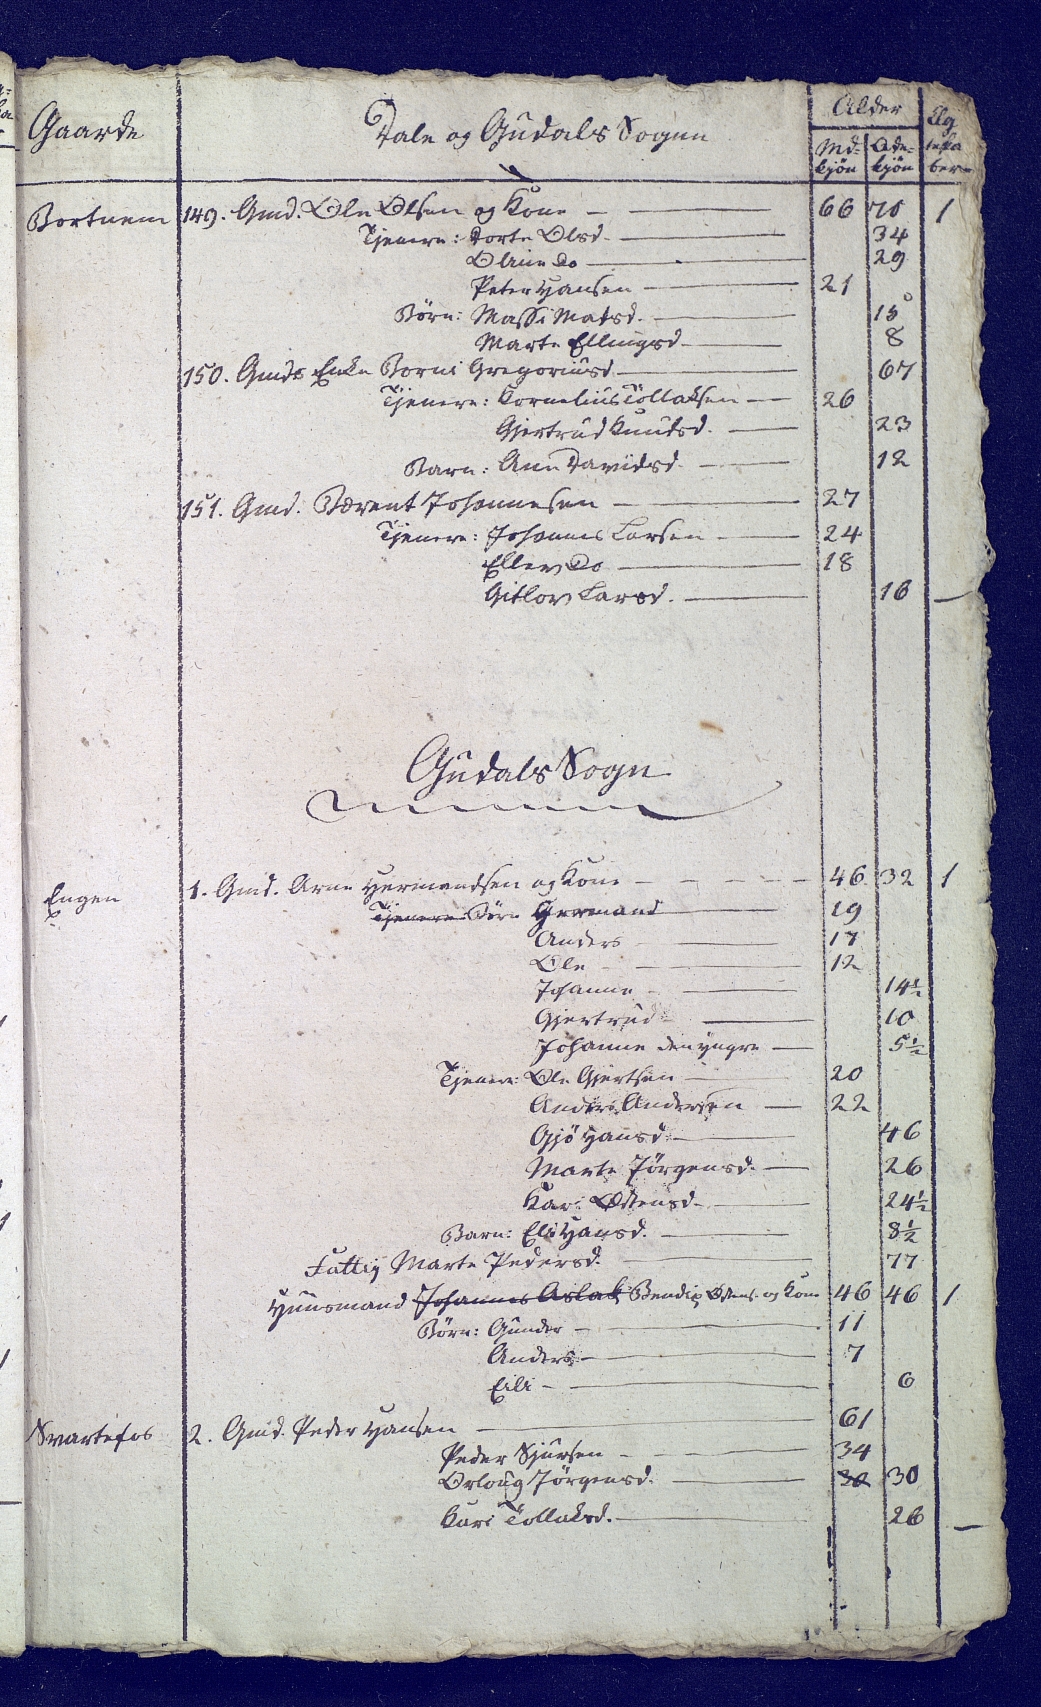 Gaarde Dale og Gudals Sogne Alder Ægteskaber
Md.kjön Qde-kjön
Bortnem 149. Gmd. Ole Olsen og Kone 66 70 1
Tjenere: Dorte Olsd. 34
Oline Do 29
Peter Hansen 21
Börn: Massi Matsd. 15
Marte Ellingsd 8
150. Gmds Enke Borni Gregoriusd 67
Tjenere: Kornelius Tollaksen 26
Gjertrud Knudsd. 23
Barn: Ane Davidsd. 12
151. Gmd. Bærent Johannesen 27
Tjenere: Johannes Larsen 24
Ellev Do 18
Gitlov Larsd. 16 —
Gudals Sogn
Engen 1. Gmd. Arne Hermandsen og Kone 46 32 1
Tjenere Börn Germand 19
Anders 17
Ole 12
Johanne 14½
Gjertrud 10
Johanne den yngre 5½
Tjenere: Ole Gjertsen 20
Anders Andersen 22
Gjö Hansd. 46
Marte Jörgensd. 26
Kari Östensd. 24½
Barn: Eli Hansd. 8½
Fattig Marte Pedersd. 77
Huusmand Johannes Aslak Bendix Östens. og Kone 46 46 1
Börn: Gunder 11
Anders 7
Eili 6
Svartefos 2. Gmd. Peder Hansen 61
Peder Sjursen 34
Orloug Jörgensd. 30 30
Kari Tollaksd. 26 —